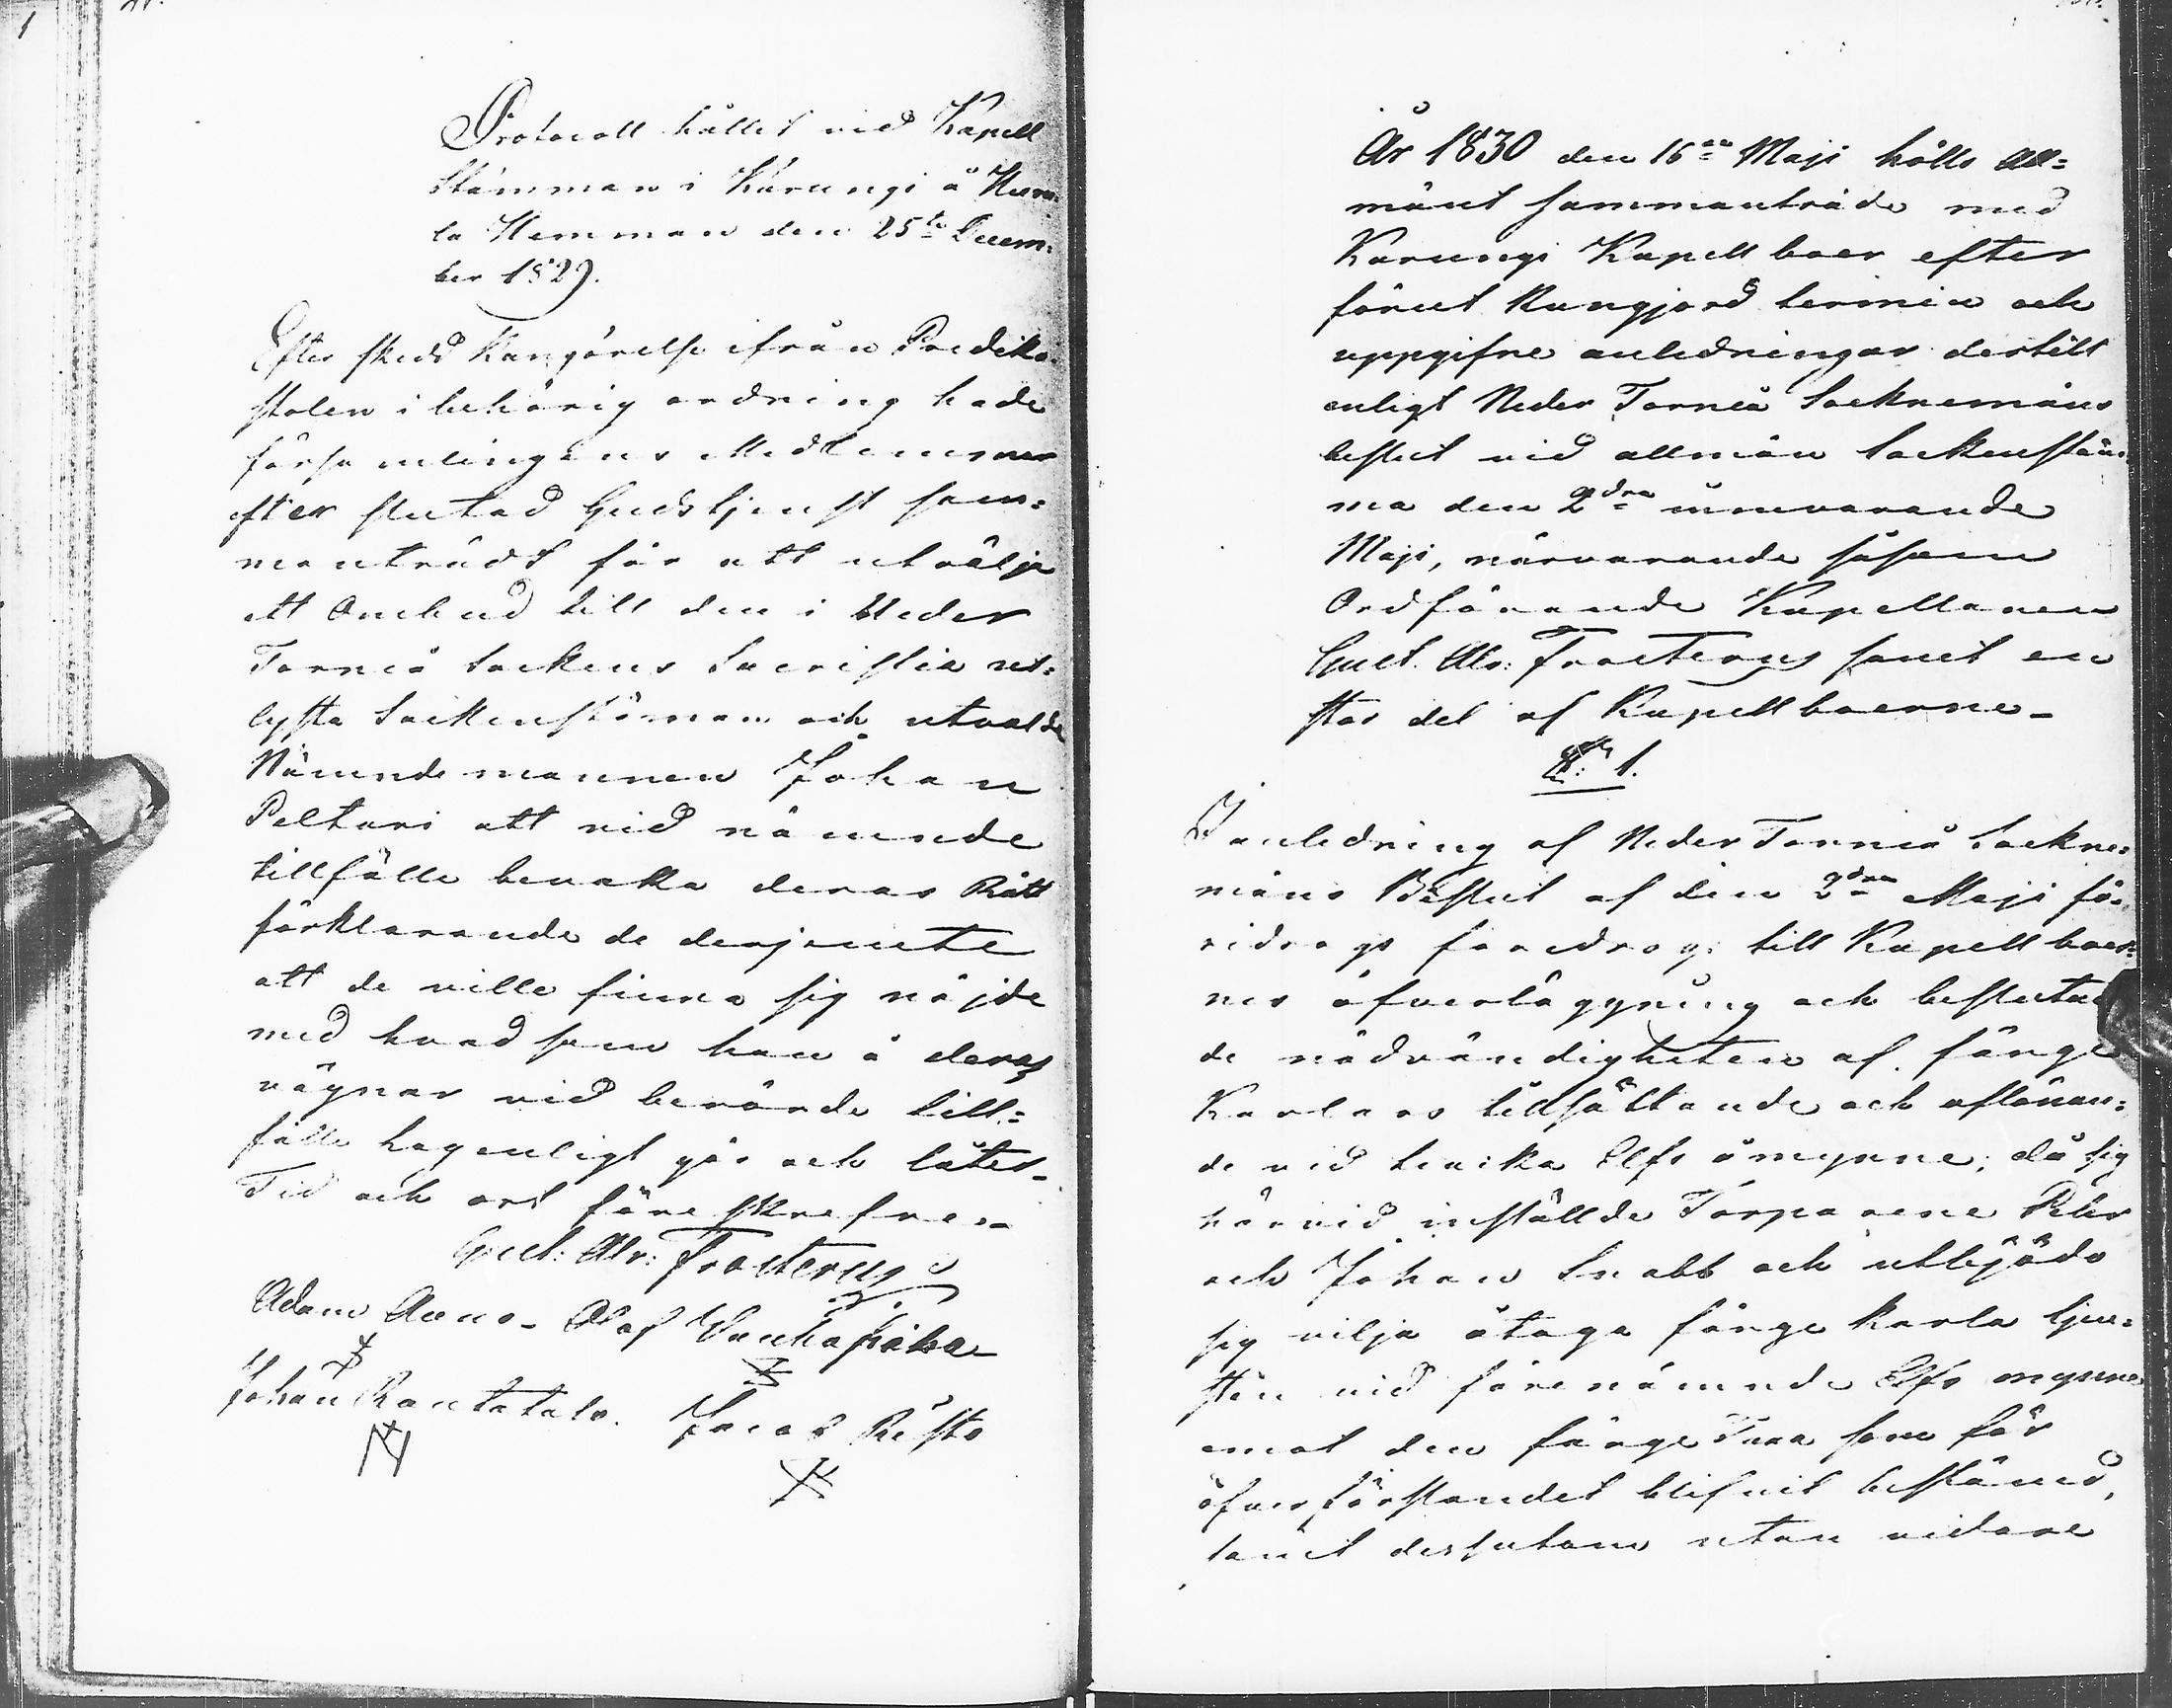 Protocoll hållit vid Kapell
Stämman i Karungi å Kuru-
la Hemman den 25te Decem-
ber 1829.
Efter skedd Kungörelse ifrån Prediko-
stolen i behörig ordning hade
församlingens Medlemmar
efter slutad Gudstjenst sam=
manträdt för att utvälja
ett Ombud till den i Neder
Torneå Sockens Sacristia ut=
lysta Sockenstämman och utvalde
Nämndemannen Johan
Peltari att vid nämnde
tillfälle bevaka deras Rätt
förklarande de derjemte
att de ville finna sig nöjde
med hvad som han å deras
vägnar vid berörde till=
fälle lagenligt gör och låter
Tid och ort föreskrefne.
Gust: Adr: Frosterus
Adam Auno Olof
Johan Rautatalo. Jacob Risto
År 1830 den 16de Maji hölls all=
mänt sammanträde med
Karungi Kapellboer efter
förut Kungjord termin och
uppgifne anledningar dertill
enligt Neder Torneå Socknemäns
beslut vid allmän Sockenstäm-
ma den 2dra innevarande
Maji, närvarande såsom
Ordförande Kapellanen
Gust. Adr: Frosterus samt en
stor del af Kapellboerne
§: 1.
I anledning af Neder Torneå Sockne=
mäns Beslut af den 2dra Maji fö-
redrogs till Kapellboer=
nes öfverläggning och beslutan
de nödvändigheten af färge
Karlars tillsättande och aflönan=
de vid Elfs åmynne; då sig
härvid inställde Torparne Peter
och Johan Snabb och utbjödo
sig vilja åtaga färge karla tjen=
sten vid förenämnde Elfs mynne
emot den färge Taxa som för
öfver förstandet blifvit bestämd,
samt dessutom utan vidare